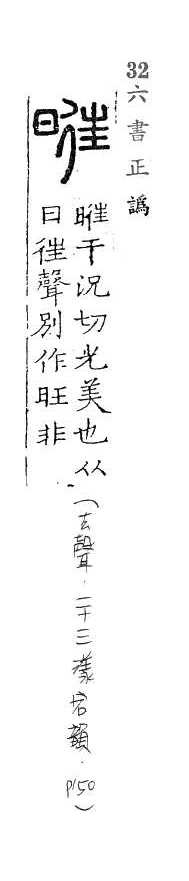 32 六書正譌
暀
暀于況切光美也从
日徃聲別作旺非
(去聲．二十三漾宕韻．p150)